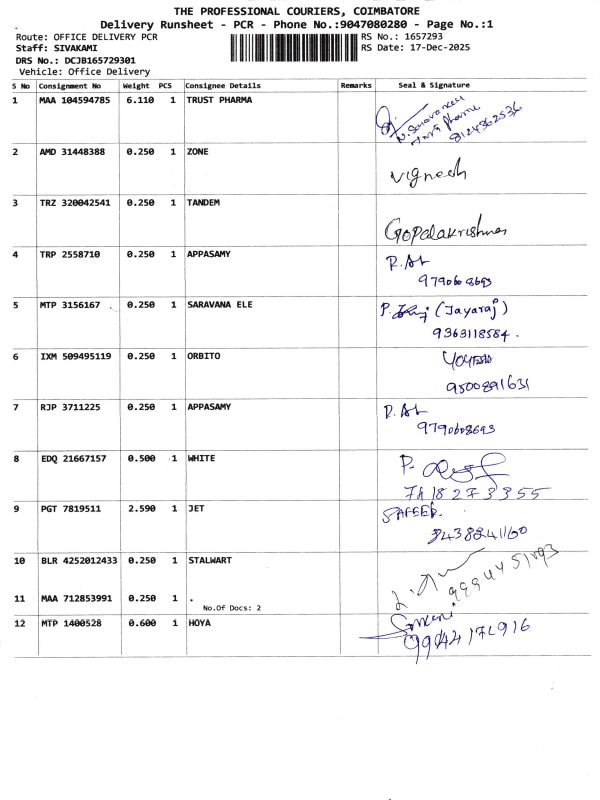 THE PROFESSIONAL COURIERS, COIMBATORE
Delivery Runsheet - PCR - Phone No.:9047080280 - Page No.:1
Route: OFFICE DELIVERY PCR RS No.: 1657293
Staff: SIVAKAMI RS Date: 17-Dec-2025
DRS No.: DCJB165729301
Vehicle: Office Delivery
S No Consignment No Weight PCS Consignee Details Remarks Seal & Signature
1 MAA 104594785 6.110 1 TRUST PHARMA
N. Saravanan
Trust Pharma
8124362536
2 AMD 31448388 0.250 1 ZONE
Vignesh
3 TRZ 320042541 0.250 1 TANDEM
Gopalakrishnan
4 TRP 2558710 0.250 1 APPASAMY
9790608693
5 MTP 3156167 0.250 1 SARAVANA ELE
P. (Jayaraj)
9363118584.
6 IXM 509495119 0.250 1 ORBITO
9500891631
7 RJP 3711225 0.250 1 APPASAMY
9790608693
8 EDQ 21667157 0.500 1 WHITE
P.
9 PGT 7819511 2.590 1 JET
SAFEER.
10 BLR 4252012433 0.250 1 STALWART
11 MAA 712853991 0.250 1 .
No.Of Docs: 2
12 MTP 1400528 0.600 1 HOYA